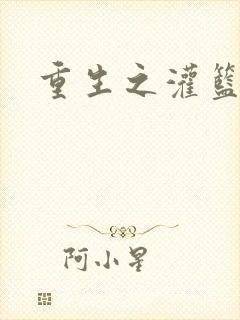 重生之灌籃
阿小星